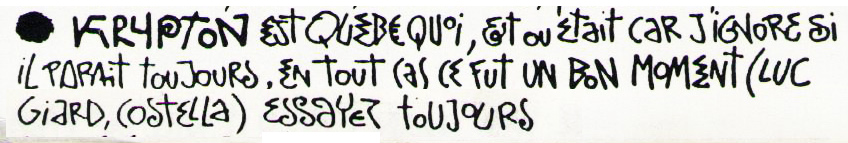 ● KRYPTON EST QUÉBEQUOI, ET OU ÉTAIT CAR J'IGNORE SI
IL PARAIT TOUJOURS. EN TOUT CAS CE FUT UN BON MOMENT (LUC
GIARD, COSTELLA) ESSAYEZ TOUJOURS